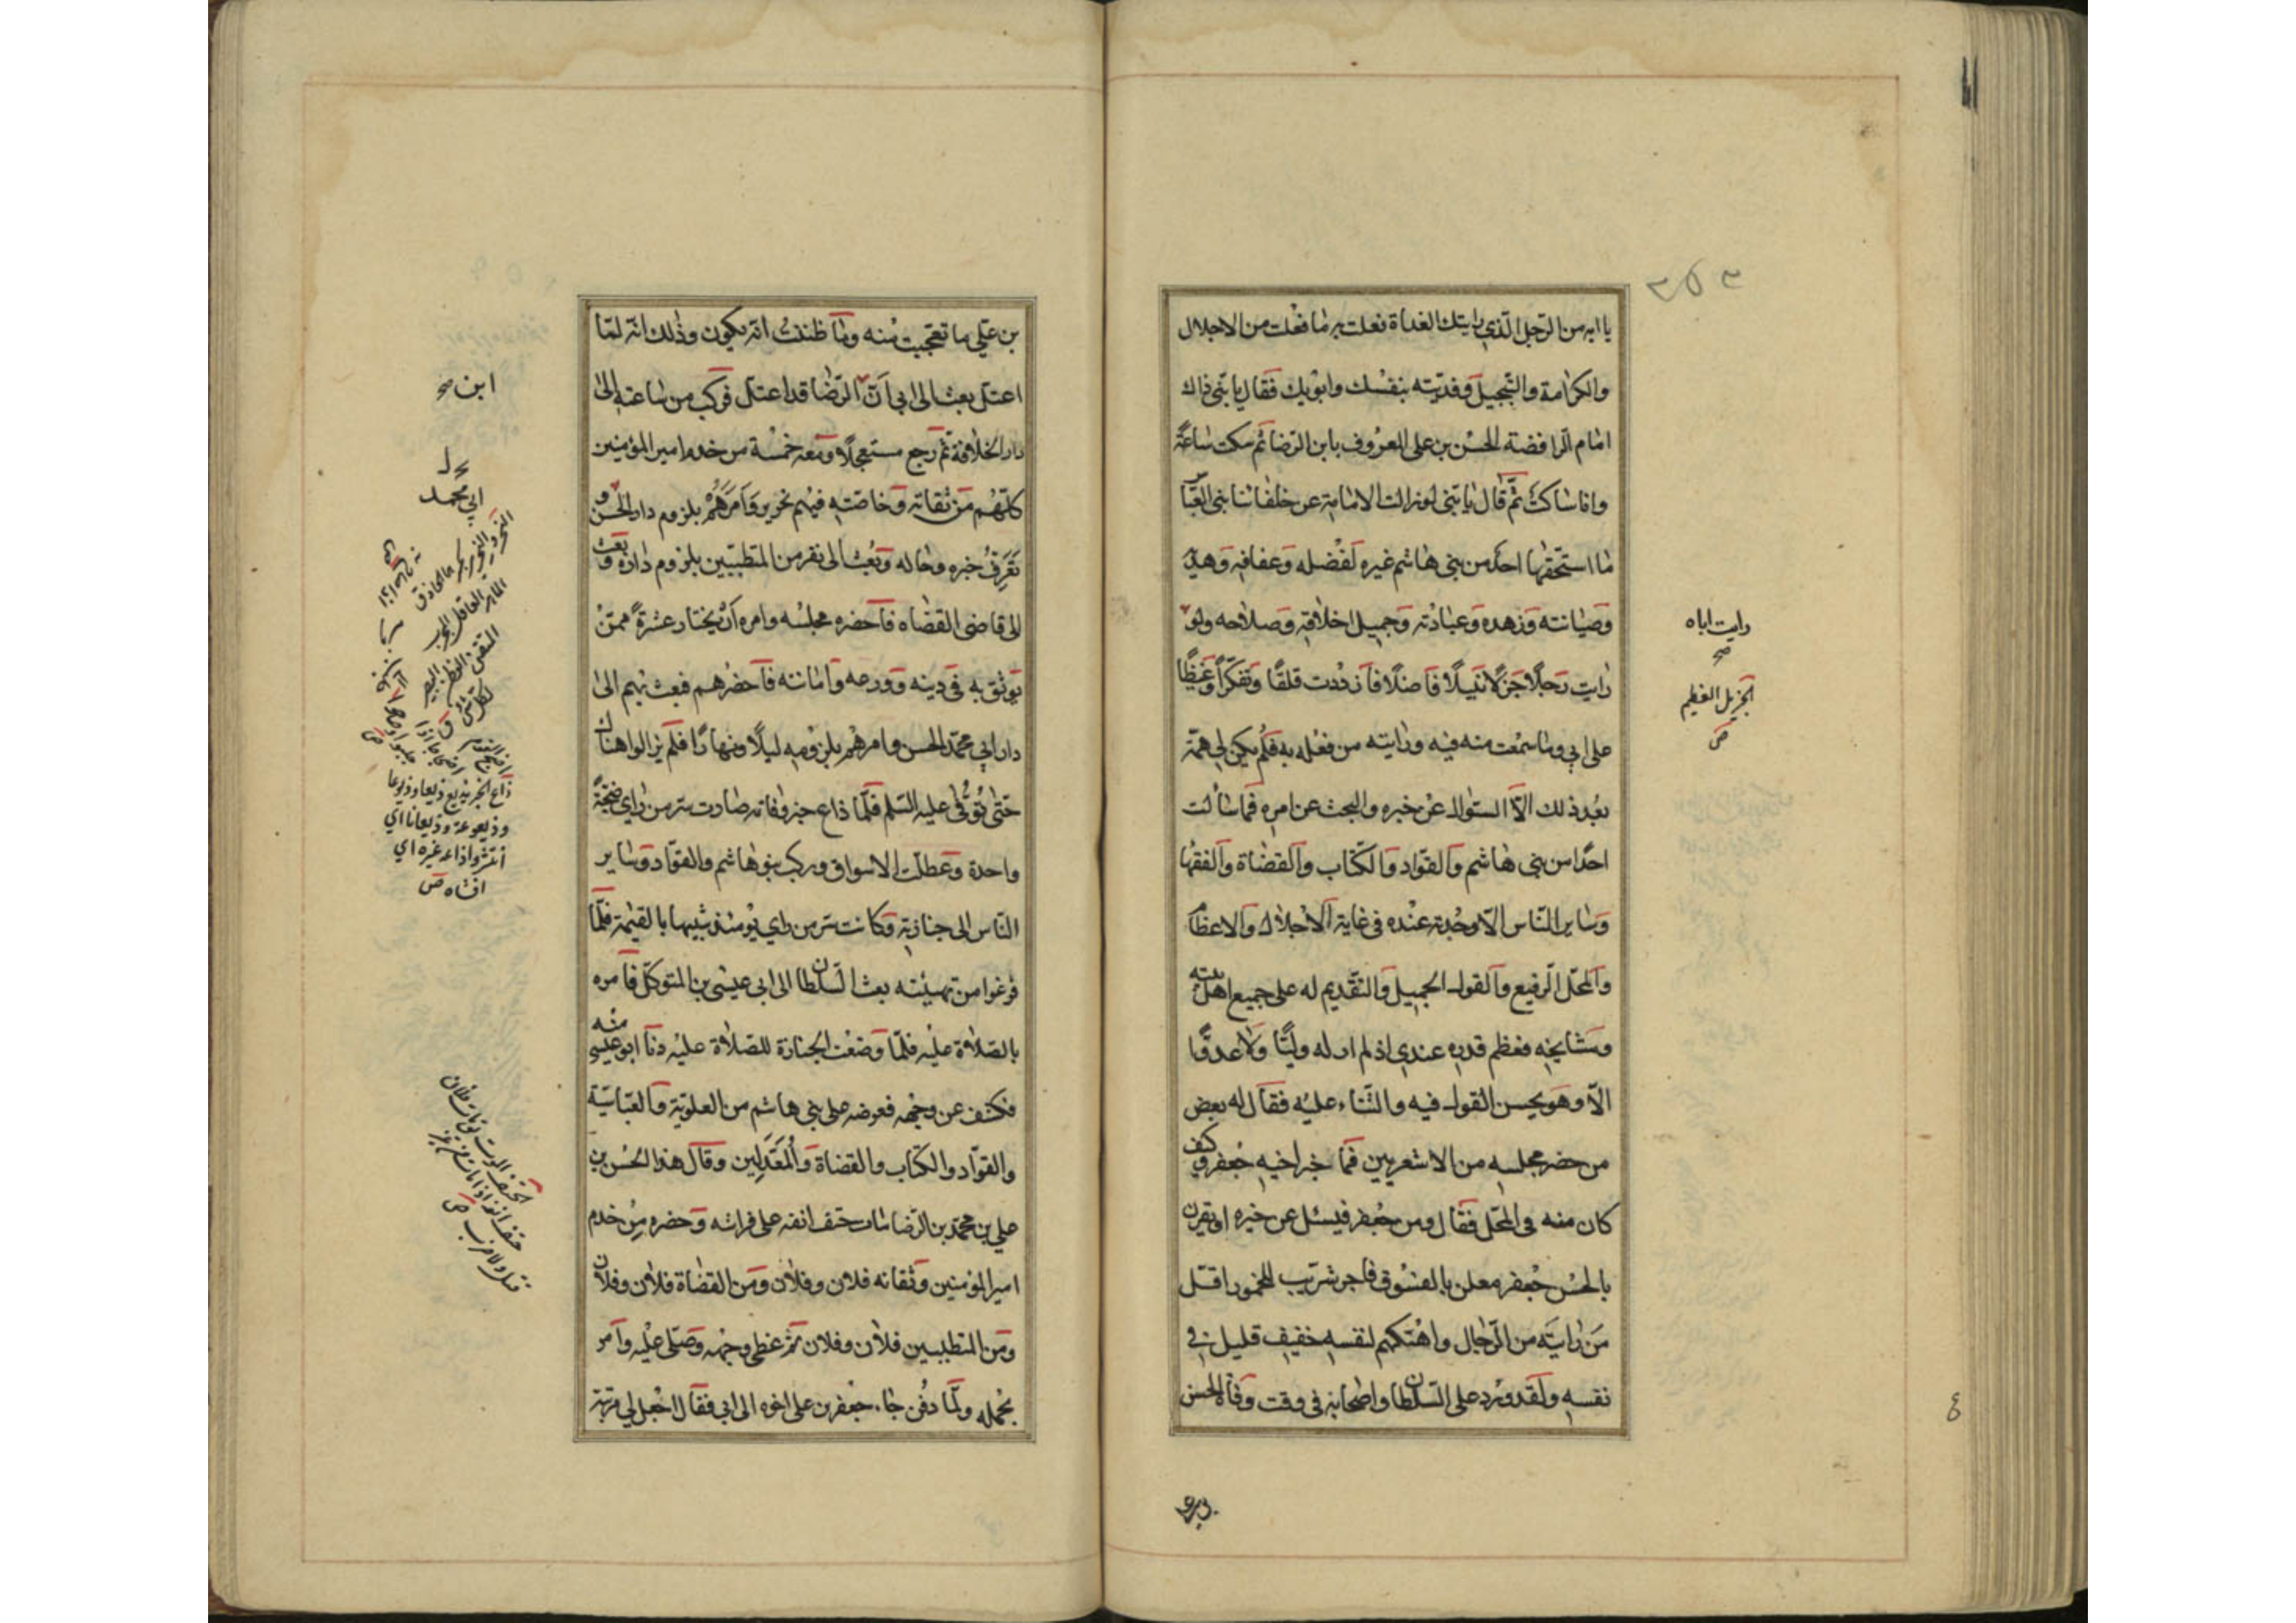 يا ابه من الرّجل الّذي رايتك الغداة فعلت به ما فعلت من الاجلال
والكرامة والتّبجيل وفدّيته بنفسك وابويك فقال يا بنّي ذاك
امام الرافضة الحسن بن علي المعروف بابن الرّضا ثم سكت ساعة
وانا ساكت ثمّ قال يا بنّي لو زالت الامامة عن خلفائنا بني العبّاس
ما استحقّها احد من بني هاشم غيره لفضله وعفافه وهديه
وصيانته وزهده وعبادته وجميل اخلاقه وصلاحه ولو
رايت رجلًا جزلًا نبيلًا فاضلًا فازددت قلقًا وتفكّرًا وغيظًا
على ابي وما سمعت منه فيه ورايته من فعله به فلم يكن لي همّة
بعد ذلك الّا السّوال عن خبره والبحث عن امره فما سألت
احدًا من بني هاشم والقوّاد والكتّاب والقضاة والفقها
وساير النّاس الّا وجدته عنده في غاية الاجلال والاعظام
والمحلّ الرّفيع والقول الجميل والتّقديم له على جميع اهل بيته
ومشايخه فعظم قدره عندي اذ لم ار له وليًّا ولا عدوًّا
الّا وهو يحسن القول فيه والثّناء عليه فقال له بعض
من حضر مجلسه من الاشعريين فما خبر اخيه جعفر وكيف
كان منه في المحّل فقال ومن جعفر فيسئل عن خبره او يقرن
بالحسن جعفر معلن بالفسوق فاجر شرّيب للخمور اقلّ
من رايته من الرّجال واهتكهم لنفسه خفيف قليل في
نفسه ولقد ورد على السّلطان واصحابه في وقت وفاة الحسن
رايت اباه
صح
الجزيل العظيم
ص
بن علي
بن عليّ ما تعجّبت منه وما ظننت انّه يكون وذلك انّه لمّا
اعتلّ بعث الى ابي انّ الرّضا قد اعتلّ فركب من ساعته الى
دار الخلافة ثم رجع مستعجلًا ومعه خمسة من خدم امير المؤمنين
كلّهم من ثقاته وخاصّته فيهم نحرير وامرهم بلزوم دار الحسن و
تعرّف خبره وحاله وبعث الى نفر من المتطبّبين بلزوم داره وبعث
الى قاضي القضاه فاحضره مجلسه وامره أن يختار عشرة ممّن
يوثق به في دينه وورعه وامانته فاحضرهم فبعث بهم الى
دار ابي محمّد الحسن وامرهم بلزومه ليلًا ونهارًا فلم يزالوا هناك
حتّى توفّى عليه السّلم فلمّا ذاع خبر وفاته صارت سرّ من راي ضجّةً
واحدة وعطلت الاسواق وركب بنو هاشم والقوّاد وساير
النّاس الى جنازته فكانت سرّ من راي يومئذ شبيها بالقيمة فلمّا
فرغوا من تهيئته بعث السّلطان الى ابي عيسى بن المتوكّل فامره
بالصّلاة عليه فلمّا وضعت الجنازة للصّلاة عليه دنا ابو عيسى منه
فكشف عن وجهه فعرضه على بني هاشم من العلويّة والعبّاسيّة
والقوّاد والكتّاب والقضاة والمعدّلين وقال هذا الحسن بن
علي بن محمّد بن الرّضا مات حتف انفه على فراشه وحضره من خدم
امير المؤمنين وثقاته فلان وفلان ومن القضاة فلان وفلان
ومن المتطبّبين فلان وفلان ثم غطى وجهه وصلّى عليه وامر
بحمله ولمّا دفن جاء جعفر بن علي اخوه الى ابي فقال اجعل لي مرتبة
ابن صح
ابي محمد
ذاع الخبر يذيع ذيعا وذيوعا
وذيعوعة وذيعانا اي
انتشر واذاعه غيره اي
افشاه ص
الحتف الموت